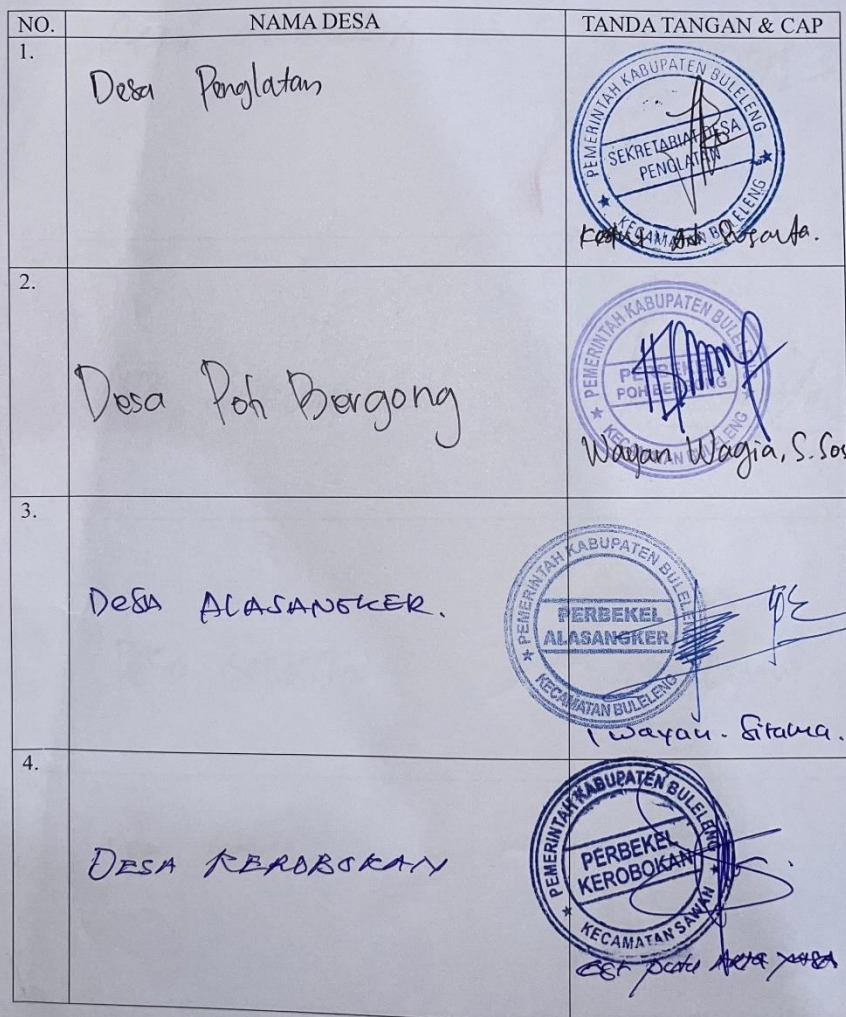 NO. NAMA DESA TANDA TANGAN & CAP
1.
Desa Penglatan
PEMERINTAH KABUPATEN BULELENG
SEKRETARIAT DESA
PENGLATAN
KECAMATAN BULELENG
2.
Desa Poh Bergong
PEMERINTAH KABUPATEN BULELENG
PERBEKEL
POH BERGONG
KECAMATAN BULELENG
Wayan Wagia, S.Sos
3.
DESA ALASANGKER.
PEMERINTAH KABUPATEN BULELENG
PERBEKEL
ALASANGKER
KECAMATAN BULELENG
I Wayan. Sitama.
4.
DESA KEROBOKAN
PEMERINTAH KABUPATEN BULELENG
PERBEKEL
KEROBOKAN
KECAMATAN SAWAN